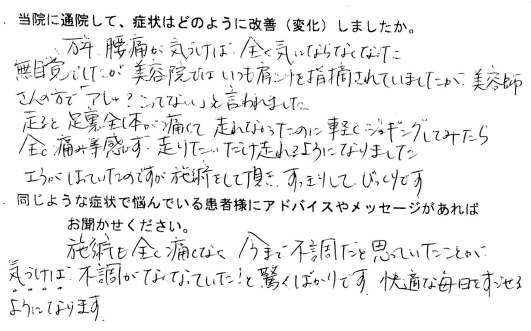 当院に通院して、症状はどのように改善（変化）しましたか。
万年腰痛が気づけば、全く気にならなくなった
無自覚でしたが美容院ではいつも肩こりを指摘されていましたが、美容師
さんの方で「アレ？こってない」と言われました
走ると足裏全体が痛くて走れなかったのに軽くジョギングしてみたら
全く痛み等感じず、走りたいだけ走れるようになりました
はっていたのですが施術をして頂き、すっきりしてびっくりです
同じような症状で悩んでいる患者様にアドバイスやメッセージがあれば
お聞かせください。
施術も全く痛くなく今まで不調だと思っていたことが
気づけば、不調がなくなっていた！と驚くばかりです。快適な毎日をすごせる
ようになります